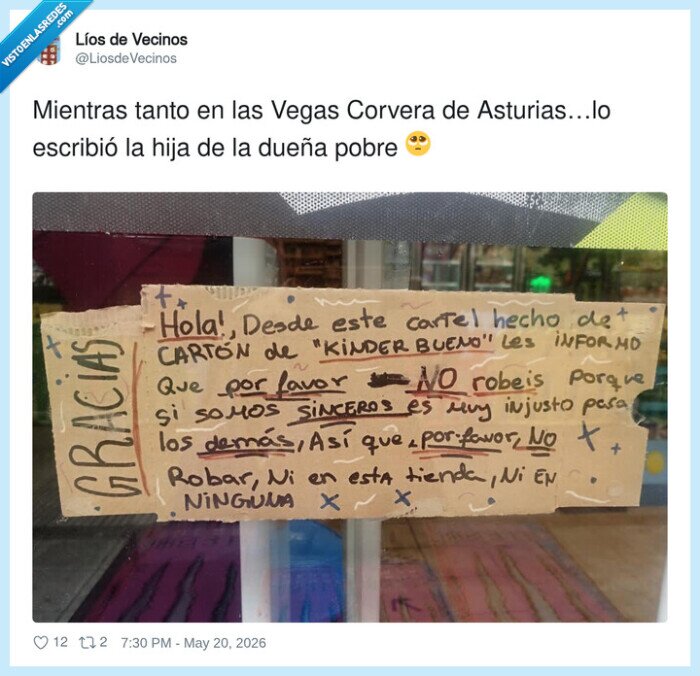 VISTOENLASREDES
.com
Líos de Vecinos
@LiosdeVecinos
Mientras tanto en las Vegas Corvera de Asturias...lo
escribió la hija de la dueña pobre 🥺
GRACIAS
Hola!, Desde este cartel hecho de
CARTÓN de "KINDER BUENO" Les iNFORMO
Que por favor NO robeis porque
si somos SINCEROS es muy injusto para
los demás, Así que, por favor, NO
Robar, Ni en esta tienda, Ni EN
NINGUNA
12
2
7:30 PM - May 20, 2026